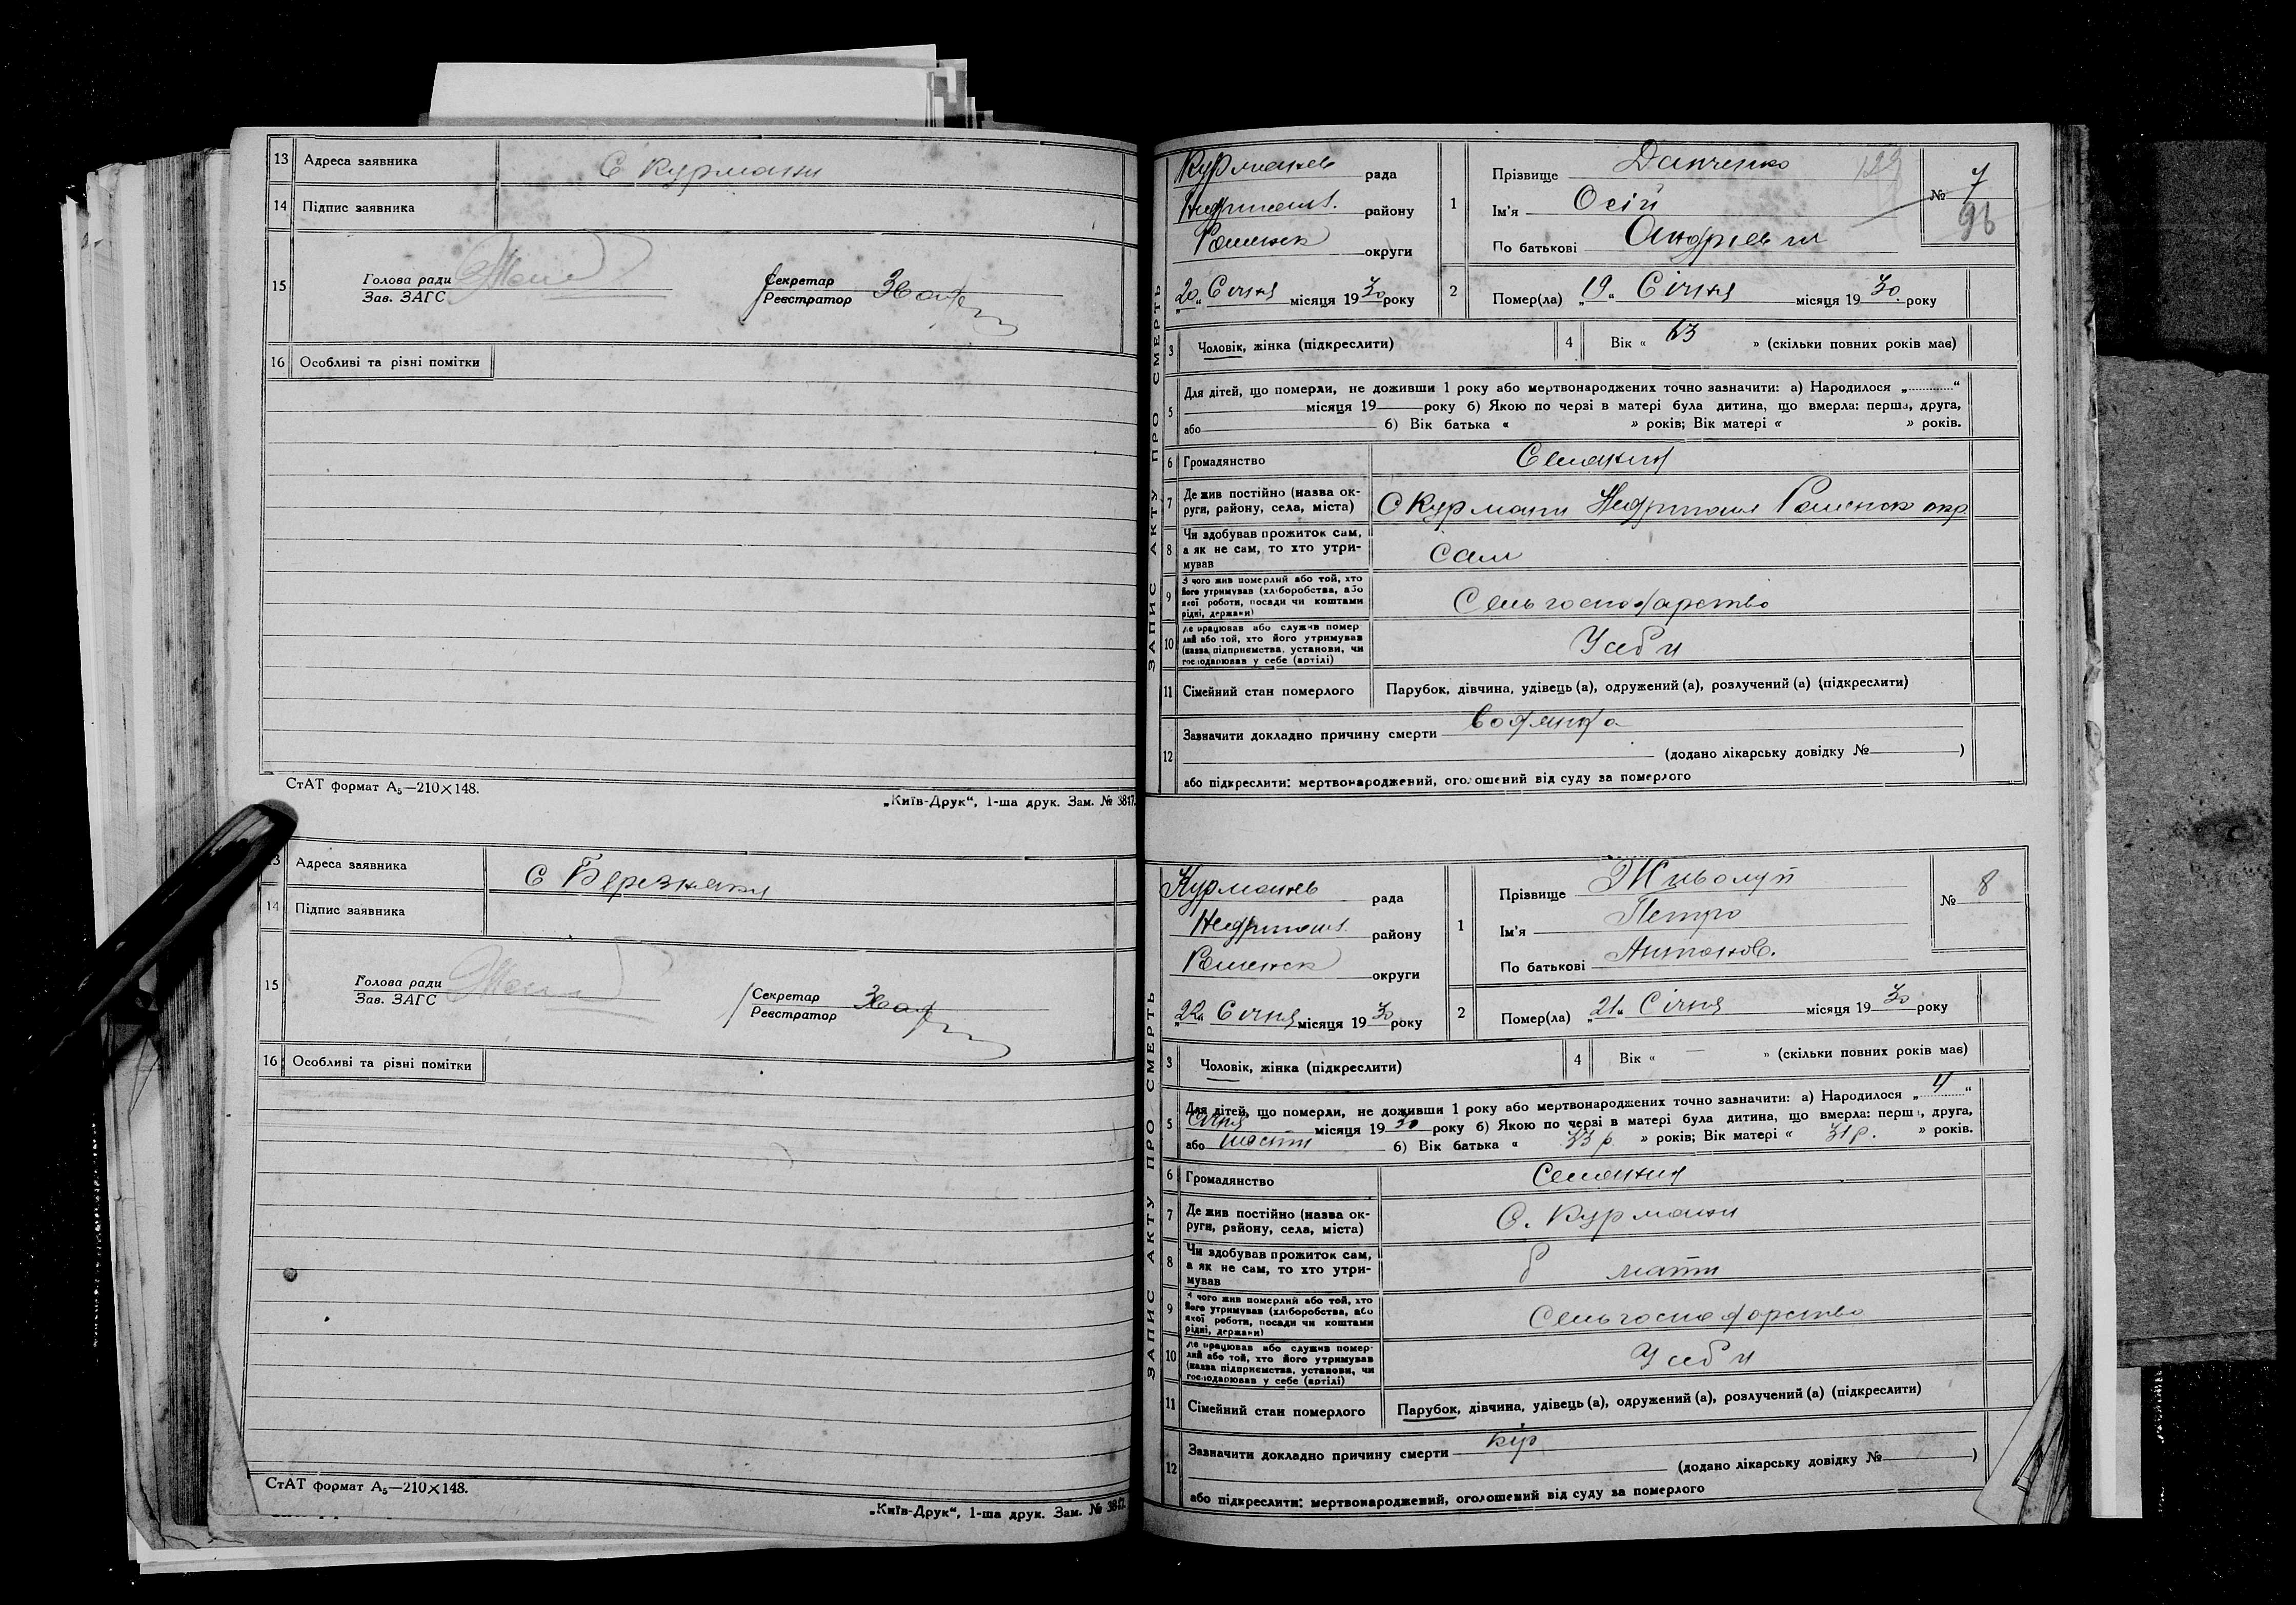 13 Адреса заявника С Курмани
14 Підпис заявника
15 Голова ради
Зав. ЗАГС
Секретар
Реєстратор
16 Особливі та різні помітки
СтАТ формат А5—210×148.
„Київ-Друк“, 1-ша друк. Зам. № 3817.
13 Адреса заявника С Березняки
14 Підпис заявника
15 Голова ради
Зав. ЗАГС
Секретар
Реєстратор
16 Особливі та різні помітки
СтАТ формат А5—210×148.
„Київ-Друк“, 1-ша друк. Зам. № 3817.
ЗАПИС АКТУ ПРО СМЕРТЬ
Курманев рада
Недригайл. району
Роменск округи
„20„ Січня місяця 1930 року
1 Прізвище Данченко
Ім'я Осій
По батькові Андрієвич
№ 7
96
122
2 Помер(ла) „19“ Січня місяця 1930 року
3 Чоловік, жінка (підкреслити)
4 Вік « 63 » (скільки повних років має)
5 Для дітей, що померли, не доживши 1 року або мертвонароджених точно зазначити: а) Народилося „ “
місяця 19 року б) Якою по черзі в матері була дитина, що вмерла: перша, друга,
або б) Вік батька « » років; Вік матері « » років.
6 Громадянство Селянин
7 Де жив постійно (назва ок-
руги, району, села, міста) С Курмани Недригайл Роменск окр
8 Чи здобував прожиток сам,
а як не сам, то хто утри-
мував сам
9 З чого жив померлий або той, хто
його утримував (хліборобства, або
якої роботи, посади чи коштами
рідні, держави) Сельгосподарство
10 Де працював або служив помер
лий або той, хто його утримував
(назва підприємства, установи, чи
господарював у себе (артілі) У себи
11 Сімейний стан померлого Парубок, дівчина, удівець (а), одружений (а), розлучений (а) (підкреслити)
12 Зазначити докладно причину смерти водянка
(додано лікарську довідку № )
або підкреслити: мертвонароджений, оголошений від суду за померлого
ЗАПИС АКТУ ПРО СМЕРТЬ
Курманев рада
Недригайл. району
Роменск округи
„22„ Січня місяця 1930 року
1 Прізвище Живолуп
Ім'я Петро
По батькові Антонов.
№ 8
2 Помер(ла) „21„ Січня місяця 1930 року
3 Чоловік, жінка (підкреслити)
4 Вік « — » (скільки повних років має)
5 Для дітей, що померли, не доживши 1 року або мертвонароджених точно зазначити: а) Народилося „ 4 “
Січня місяця 1930 року б) Якою по черзі в матері була дитина, що вмерла: перша, друга,
або б) Вік батька « 33 р » років; Вік матері « 31 р. » років.
6 Громадянство Селянин
7 Де жив постійно (назва ок-
руги, району, села, міста) С. Курмани
8 Чи здобував прожиток сам,
а як не сам, то хто утри-
мував мати
9 З чого жив померлий або той, хто
його утримував (хліборобства, або
якої роботи, посади чи коштами
рідні, держави) Сельгосподарство
10 Де працював або служив помер-
лий або той, хто його утримував
(назва підприємства, установи, чи
господарював у себе (артілі) У себи
11 Сімейний стан померлого Парубок, дівчина, удівець (а), одружений (а), розлучений (а) (підкреслити)
12 Зазначити докладно причину смерти кір
(додано лікарську довідку № )
або підкреслити: мертвонароджений, оголошений від суду за померлого